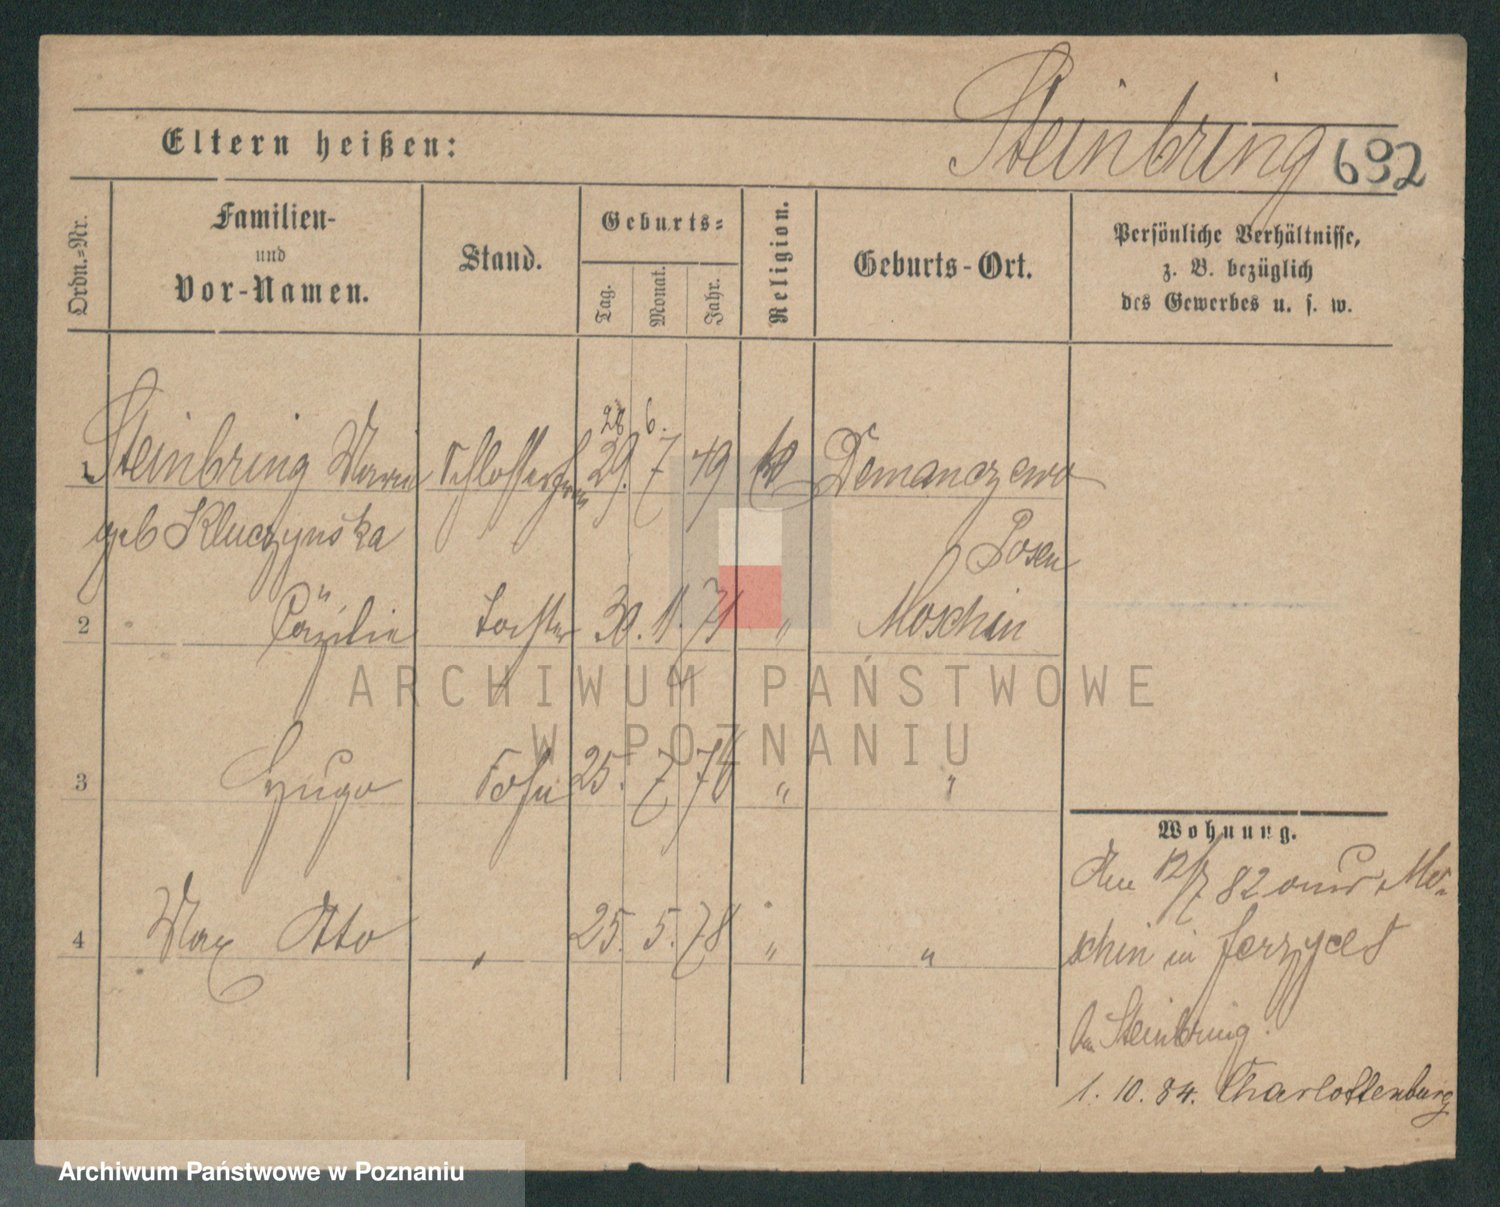 Steinbring 692
Eltern heißen:
Ordn.=Nr.
Familien-
und
Vor-Namen.
Stand.
Geburts=
Tag.
Monat.
Jahr.
Religion.
Geburts-Ort.
Persönliche Verhältnisse,
z. B. bezüglich
des Gewerbes u. s. w.
28 6.
1 Steinbring Schlosserfrau 29. 7 49 Demanczewo
geb Kluczynska Posen
2 Cäzilie Tochter 30. 11. 71 " Moschin
3 Hugo Sohn 25. 7 76 " "
4 Max Otto " 25. 5. 78 " "
Wohnung.
Am 12/7 82 aus Mo-
schin in Jerzyce 8
Steinbring.
1. 10. 84. Charlottenburg
ARCHIWUM PAŃSTWOWE
W POZNANIU
Archiwum Państwowe w Poznaniu